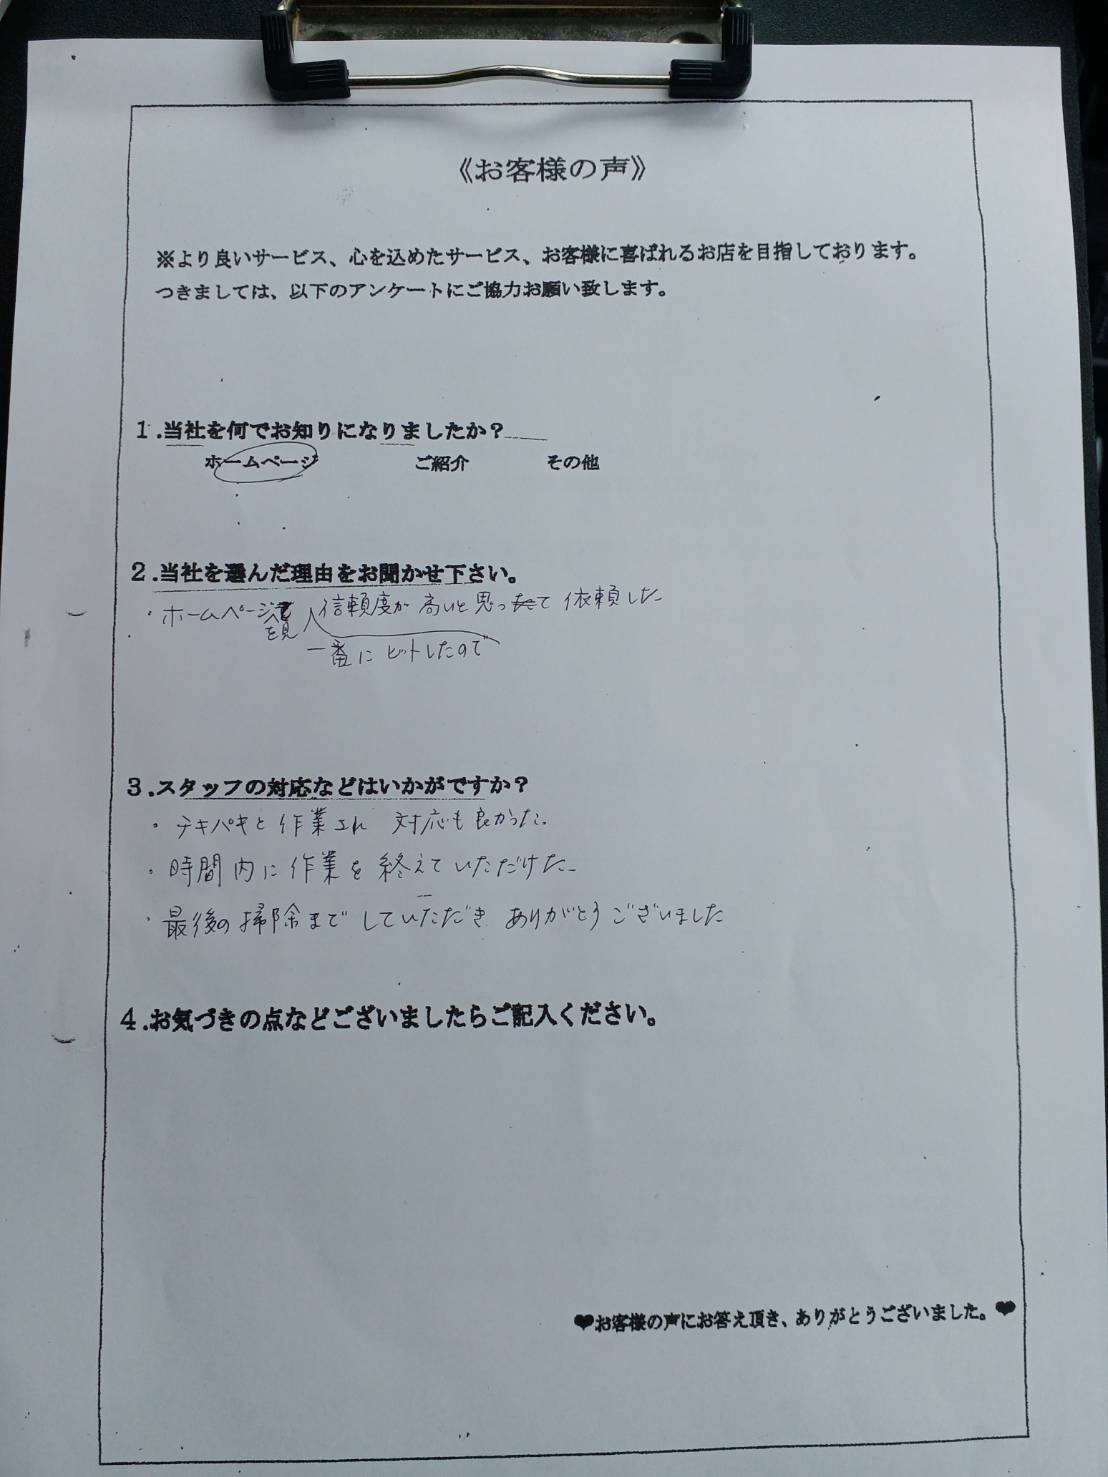 《お客様の声》
※より良いサービス、心を込めたサービス、お客様に喜ばれるお店を目指しております。
つきましては、以下のアンケートにご協力お願い致します。
1.当社を何でお知りになりましたか?
ホームページ ご紹介 その他
2.当社を選んだ理由をお聞かせ下さい。
・ホームページ 信頼度が高いと思って依頼した
を見
一番にヒットしたので
3.スタッフの対応などはいかがですか?
・テキパキと作業され 対応も良かった。
・時間内に作業を終えていただけた。
・最後の掃除までしていただき ありがとうございました
4.お気づきの点などございましたらご記入ください。
♥お客様の声にお答え頂き、ありがとうございました。♥